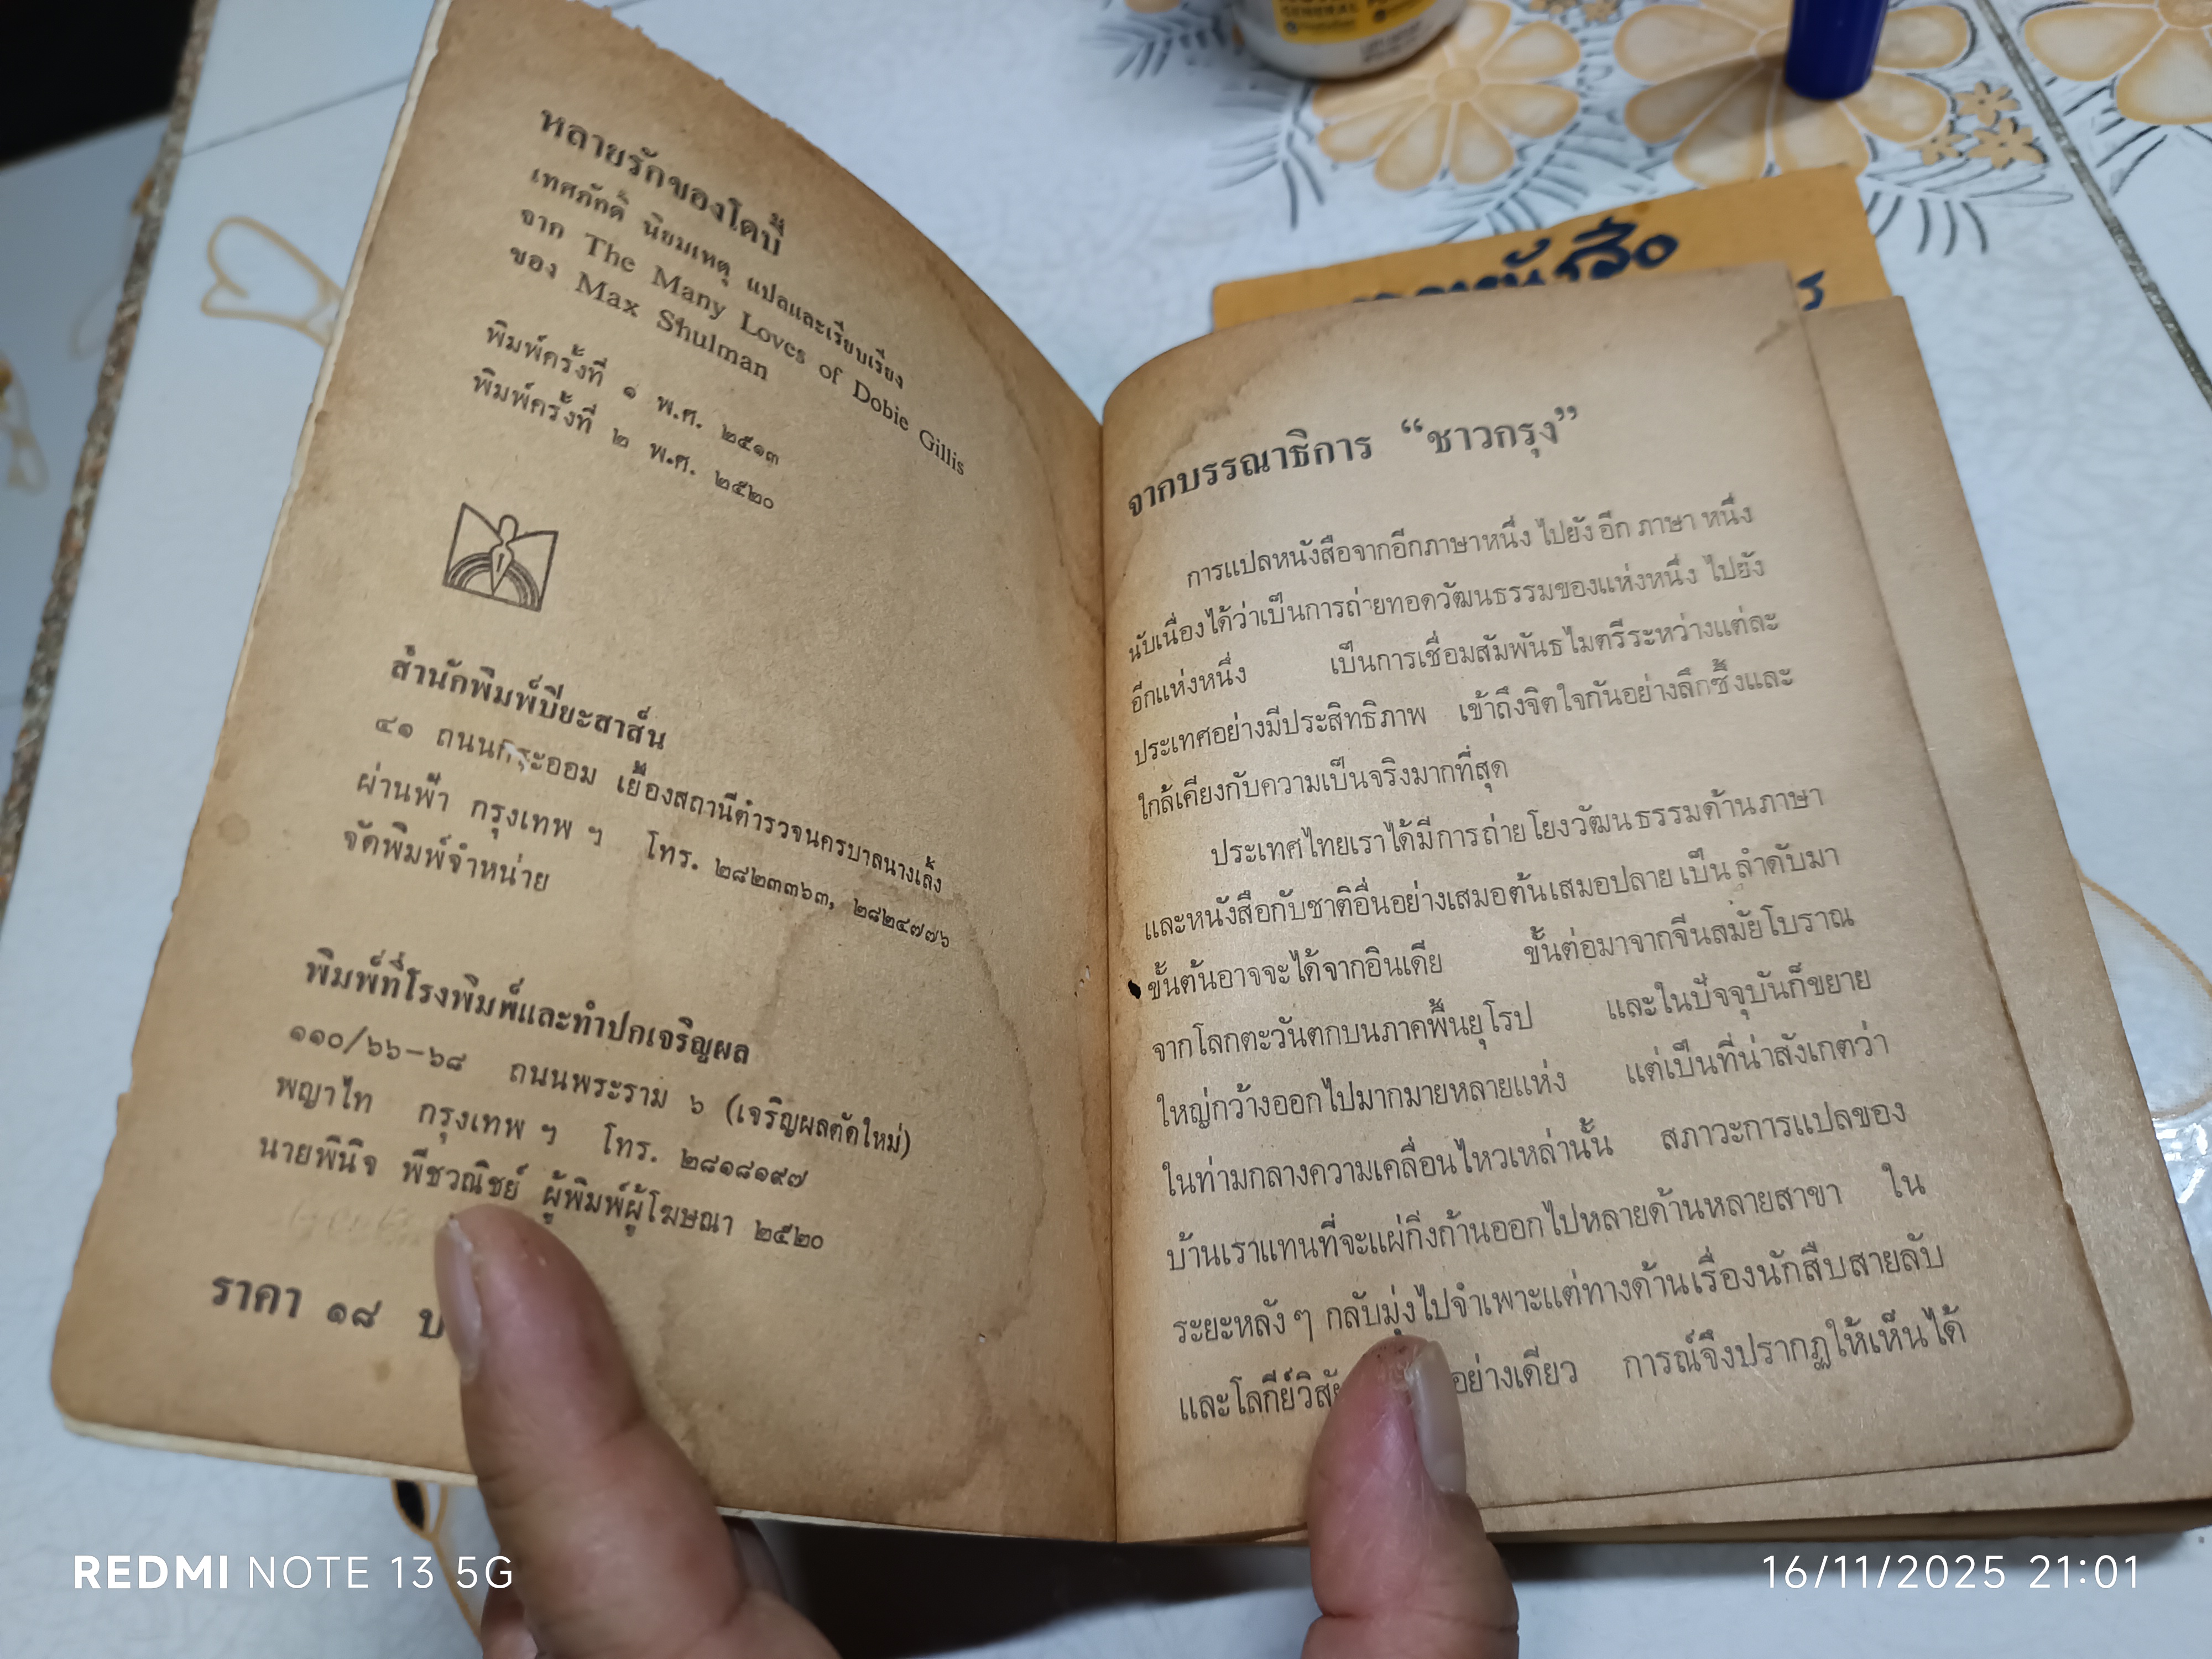 หลายรักของโดบี้
เทศภักดิ์ นิยมเหตุ แปลและเรียบเรียง
จาก The Many Loves of Dobie Gillis
ของ Max Shulman
พิมพ์ครั้งที่ ๑ พ.ศ. ๒๕๑๓
พิมพ์ครั้งที่ ๒ พ.ศ. ๒๕๒๐
สำนักพิมพ์ปิยะสาส์น
๔๑ ถนนกระออม เยื้องสถานีตำรวจนครบาลนางเลิ้ง
ผ่านฟ้า กรุงเทพ ฯ โทร. ๒๘๒๓๓๖๓, ๒๘๒๔๗๗๖
จัดพิมพ์จำหน่าย
พิมพ์ที่โรงพิมพ์และทำปกเจริญผล
๑๑๐/๖๖–๖๘ ถนนพระราม ๖ (เจริญผลตัดใหม่)
พญาไท กรุงเทพ ฯ โทร. ๒๘๑๘๑๙๗
นายพินิจ พีชวณิชย์ ผู้พิมพ์ผู้โฆษณา ๒๕๒๐
ราคา ๑๘ บ
จากบรรณาธิการ “ชาวกรุง”
การแปลหนังสือจากอีกภาษาหนึ่ง ไปยัง อีก ภาษา หนึ่ง
นับเนื่องได้ว่าเป็นการถ่ายทอดวัฒนธรรมของแห่งหนึ่ง ไปยัง
อีกแห่งหนึ่ง เป็นการเชื่อมสัมพันธไมตรีระหว่างแต่ละ
ประเทศอย่างมีประสิทธิภาพ เข้าถึงจิตใจกันอย่างลึกซึ้งและ
ใกล้เคียงกับความเป็นจริงมากที่สุด
ประเทศไทยเราได้มีการถ่ายโยงวัฒนธรรมด้านภาษา
และหนังสือกับชาติอื่นอย่างเสมอต้นเสมอปลาย เป็น ลำดับมา
ขั้นต้นอาจจะได้จากอินเดีย ขั้นต่อมาจากจีนสมัยโบราณ
จากโลกตะวันตกบนภาคพื้นยุโรป และในปัจจุบันก็ขยาย
ใหญ่กว้างออกไปมากมายหลายแห่ง แต่เป็นที่น่าสังเกตว่า
ในท่ามกลางความเคลื่อนไหวเหล่านั้น สภาวะการแปลของ
บ้านเราแทนที่จะแผ่กิ่งก้านออกไปหลายด้านหลายสาขา ใน
ระยะหลัง ๆ กลับมุ่งไปจำเพาะแต่ทางด้านเรื่องนักสืบสายลับ
และโลกีย์วิสัย อย่างเดียว การณ์จึงปรากฏให้เห็นได้
REDMI NOTE 13 5G
16/11/2025 21:01